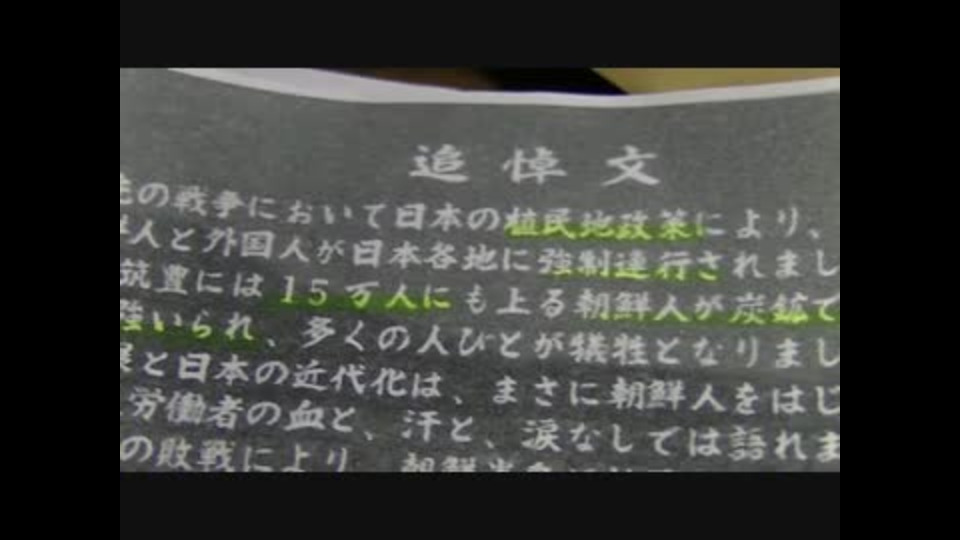 追悼文
先の戦争において日本の植民地政策により、
鮮人と外国人が日本各地に強制連行されまし
筑豊には15万人にも上る朝鮮人が炭鉱で
強いられ、多くの人びとが犠牲となりまし
展と日本の近代化は、まさに朝鮮人をはじ
労働者の血と、汗と、涙なしでは語れま
の敗戦により、朝鮮